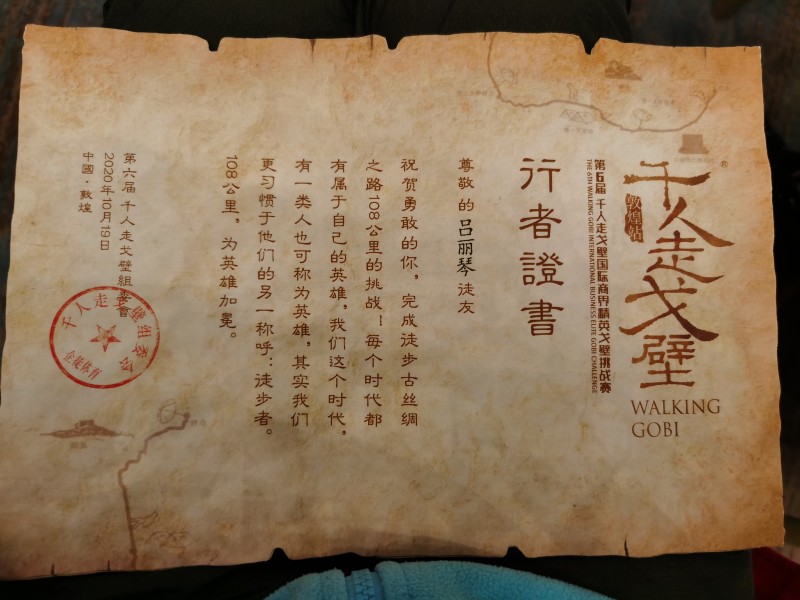 千人走戈壁
®
敦煌站
WALKING
GOBI
第6届 千人走戈壁国际商界精英戈壁挑战赛
THE 6TH WALKING GOBI INTERNATIONAL BUSINESS ELITE GOBI CHALLENGE
行者證書
尊敬的 吕丽琴 徒友
祝贺勇敢的你，完成徒步古丝绸
之路108公里的挑战！每个时代都
有属于自己的英雄，我们这个时代，
有一类人也可称为英雄，其实我们
更习惯于他们的另一称呼：徒步者。
108公里，为英雄加冕。
第六届 千人走戈壁组委会
2020年10月19日
中國·敦煌
千人走戈壁组委会